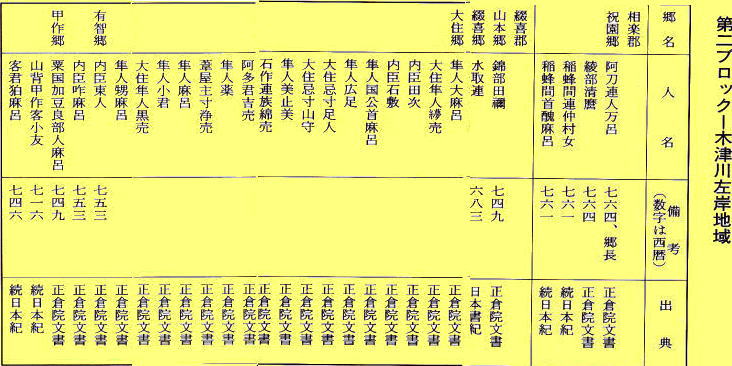 第二ブロックー木津川左岸地域
郷名 人名 備考(数字は西暦) 出典
相楽郡
祝園郷 阿刀連人万呂 七六四、郷長 正倉院文書
綾部清麿 七六四 正倉院文書
稲蜂間連仲村女 七六一 続日本紀
稲蜂間首醜麻呂 七六一 続日本紀
綴喜郡
山本郷 錦部田禰 七四九 正倉院文書
綴喜郷 水取連 六八三 日本書紀
大住郷 隼人大麻呂 正倉院文書
大住隼人 売 正倉院文書
内臣田次 正倉院文書
内臣石敷 正倉院文書
隼人国公首麻呂 正倉院文書
隼人広足 正倉院文書
大住忌寸足人 正倉院文書
大住忌寸山守 正倉院文書
隼人美止美 正倉院文書
石作連族綿売 正倉院文書
阿多君吉売 正倉院文書
隼人薬 正倉院文書
葦屋主寸浄売 正倉院文書
隼人麻呂 正倉院文書
隼人小君 正倉院文書
大住隼人黒売 正倉院文書
隼人甥麻呂 正倉院文書
有智郷 内臣東人 七五三 正倉院文書
内臣咋麻呂 七五三 正倉院文書
甲作郷 粟国加豆良部人麻呂 七四九 正倉院文書
山背甲作客小友 七一六 続日本紀
客君狛麻呂 七四六 続日本紀